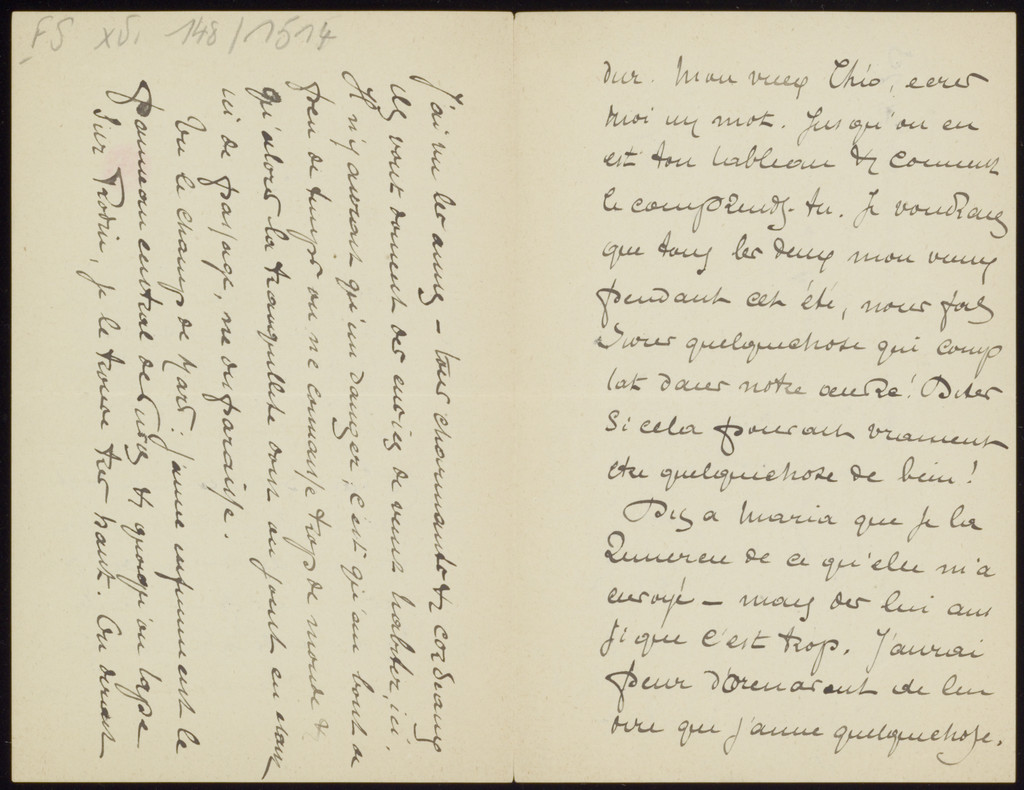 FS XV. 148/1514
J'ai vu les amis – tous charmants & cordiaux
Ils vont donnent des envies de venir habiter, ici.
Il n'y aurait qu'un danger; c'est qu'au bout de
peu de temps on ne connaisse trop de monde &
qu'alors la tranquillité dont on jouit en etant
ici de passage, ne disparaisse.
Vu le champ de Mars: j'aime infiniment le
panneau central de & quoiqu'on tape
sur Rodin, je le trouve très haut. On dirait
dur. Mon vieux Théo, ecris
moi un mot. Jusqu'ou en
est ton tableau & comment
le comprends-tu. Je voudrais
que tous les deux mon vieux
pendant cet été, nous fas
sions quelquechose qui comp
tat dans notre œuvre!
si cela pourait vraiment
etre quelquechose de bien!
Dis a Maria que je la
remercie de ce qu'elle m'a
envoyé – mais dis lui aus
si que c'est trop. J'aurai
peur dorenavant de lui
dire que j'aime quelquechose.